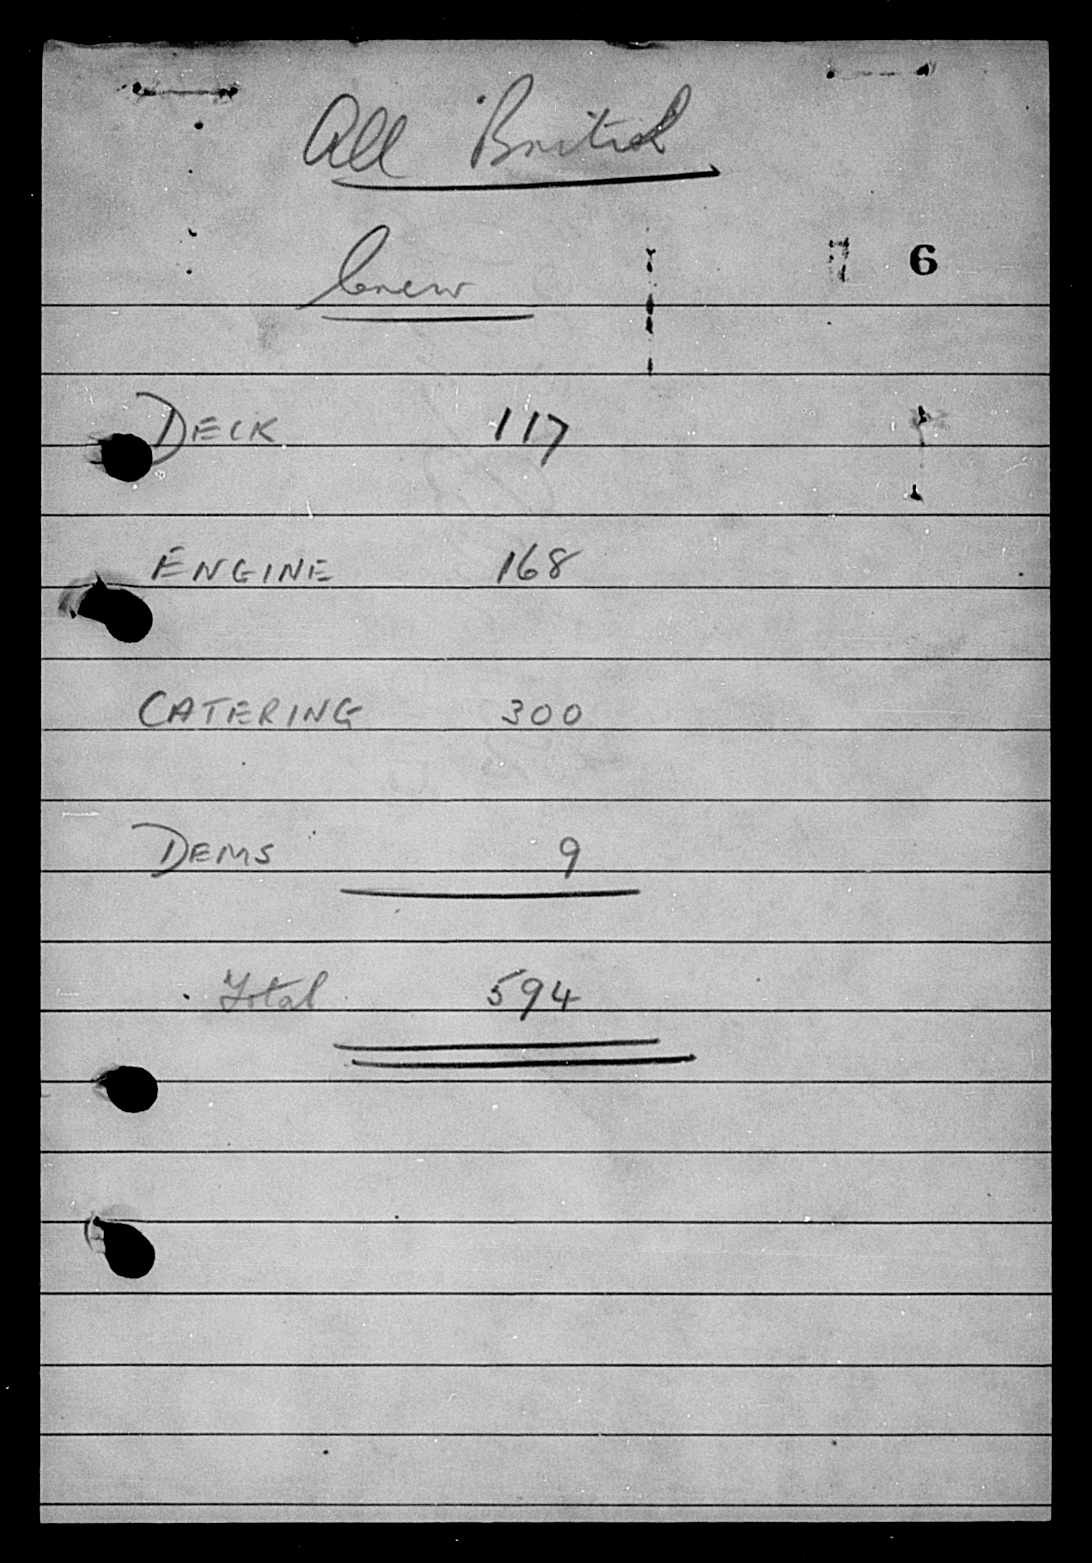 All British
Crew
6
DECK 117
ENGINE 168
CATERING 300
DEMS 9
Total 594